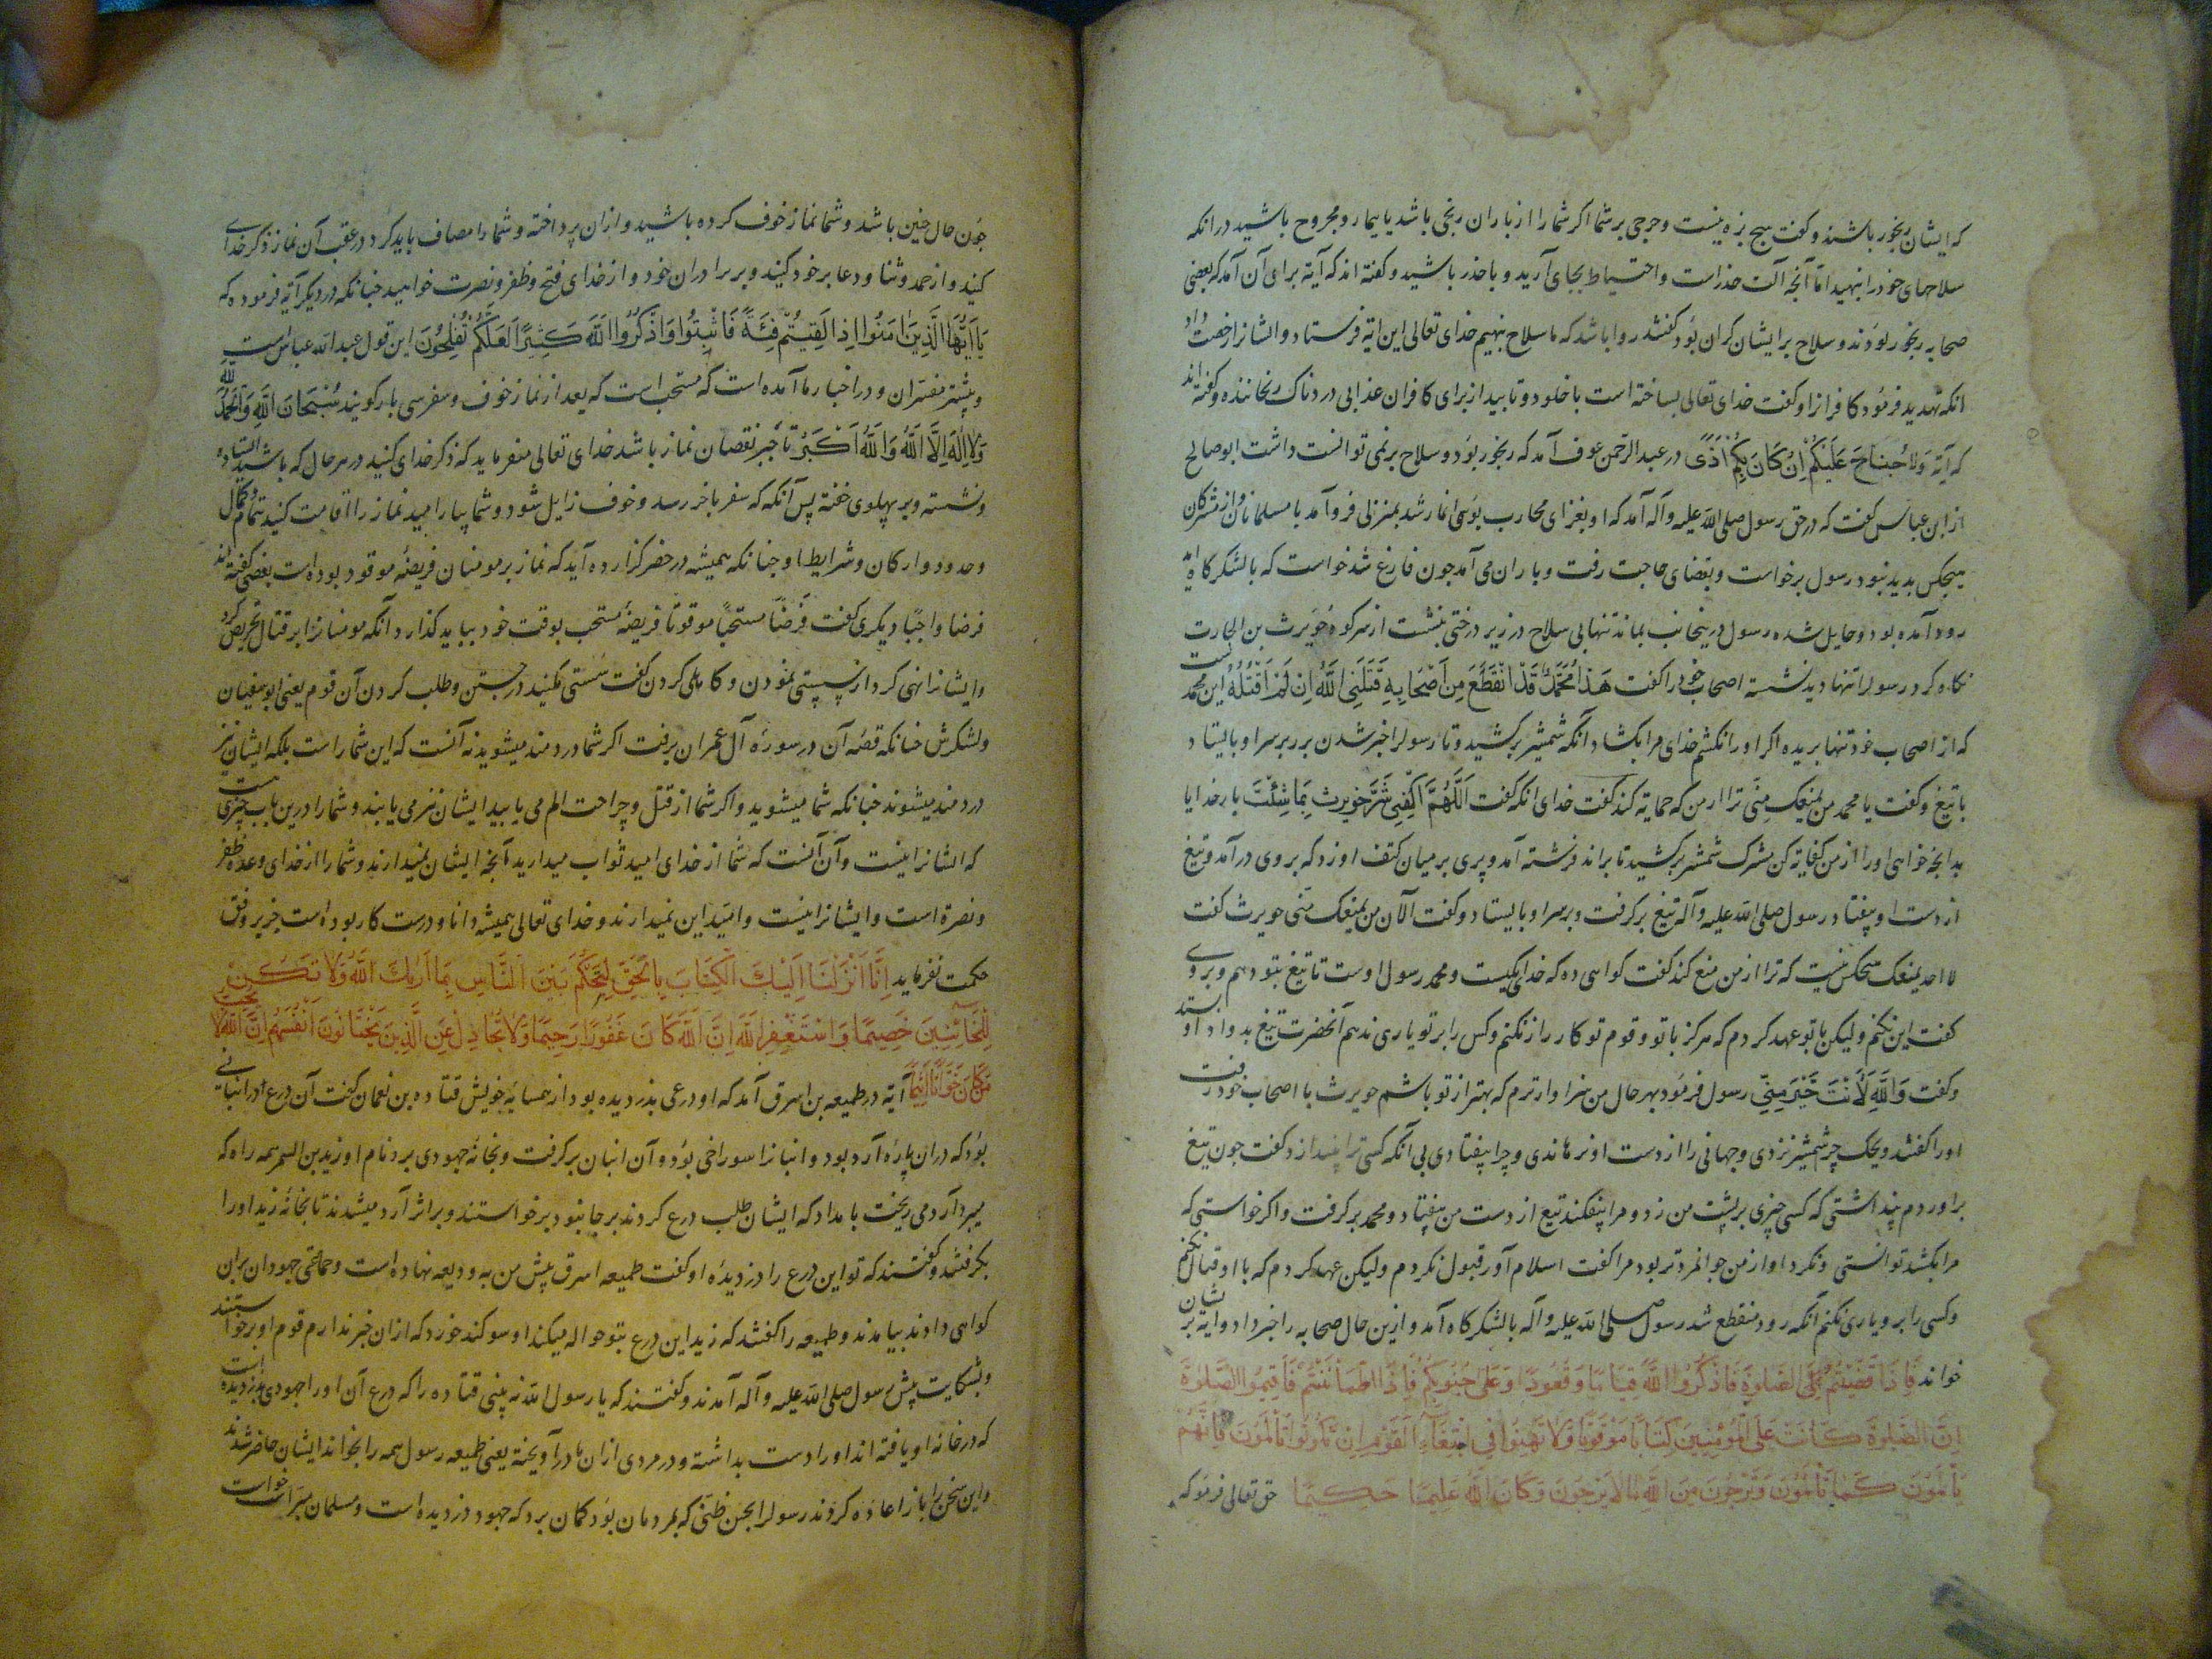 که ایشان رنجور باشند و گفت هیچ بزه نیست و حرجی بر شما اکر شما را از باران رنجی باشد یا بیمار و مجروح باشید در انکه
سلاحهای خود را بنهید امّا آنجه آلت حذر است و احتیاط بجای آرید و با حذر باشید و کفته اند که آیة برای آن آمد که بعضی
صحابه رنجور بودند و سلاح بر ایشان کران بود کفتند روا باشد که ما سلاح بنهیم خدای تعالی این ایة فرستاد و ایشانرا رخصت داد
انکه تهدید فرمود کافرانرا و کفت خدای تعالی بساخته است با خلود و تابید از برای کافران عذابی دردناک رنجاننده و کفته اند
که آیه وَلَا جُنَاحَ عَلَيْكُمْ اِنْ كَانَ بِكُمْ اَذًى در عبد الرحمن عوف آمد که رنجور بود و سلاح بر نمی توانست داشت ابو صالح
از ابن عباس کفت که در حق رسول صلی الله علیه وآله آمد که او بغزای محارب بوسی انمار شد بمنزلی فرو آمد با مسلمانان و از مشرکان
هیچکس بدید نبود رسول برخواست و بقضای حاجت رفت و باران می آمد جون فارغ شد خواست که بالشکرکاه آید
رود آمده بود و حایل شده رسول در ینجانب بماند تنها بی سلاح در زیر درختی بنشست از سر کوه حویرث بن الحارث
نکاه کرد رسولرا تنها دید نشسته اصحاب خود را کفت هَذَا مُحَمَّدٌ قَدْ اِنْقَطَعَ مِنْ اَصْحَابِهِ قَتَلَنِیَ اللّٰهُ اِنْ لَمْ اَقْتُلْهُ این محمد است
که از اصحاب خود تنها بریده اکر او را نکشم خدای مرا بکشاد آنکه شمشیر برکشید و تا رسولرا خبر شدن بر بر سر او بایستاد
با تیغ و کفت یا محمد من یمنعک مِنّی ترا از من که حمایة کند کفت خدای انکه کفت اَللّٰهُمَّ اکْفِنِی شَرَّ حُوَیرِث بِمَا شِئْتَ بار خدایا
بدانجه خواهی او را از من کفایة کن مشرک شمشیر برکشید تا براند فرشته آمد و پری بر میان کتف او زد که بروی درآمد و تیغ
از دست او بیفتاد رسول صلی الله علیه وآله تیغ برکرفت و بر سر او بایستاد و کفت الآن من یمنعک منّی حویرث کفت
لا احد یمنعک هیچکس نیست که ترا از من منع کند کفت کواهی ده که خدا یکیست و محمد رسول اوست تا تیغ بتو دهم و بروی
کفت این نکنم ولیکن با تو عهد کردم که هرکز با تو و قوم تو کارزار نکنم و کس را بر تو یاری ندهم آنحضرت تیغ بدو داد او بستد
و کفت وَاللّٰهِ لَاَنْتَ خَیْرٌ مِنِّی رسول فرمود بهر حال من سزاوارترم که بهتر از تو باشم حویرث با اصحاب خود رفت
او را کفتند ویحک چرا شمشیر نزدی و جهانی را از دست او نرهاندی و چرا بیفتادی بی آنکه کسی ترا بینداز د کفت جون تیغ
براوردم پنداشتی که کسی چیزی بر پشت من زد و مرا بیفکند تیغ از دست من بیفتاد و محمد برکرفت و اکر خواستی که
مرا بکشد توانستی و نکرد او از من جوانمردتر بود مرا کفت اسلام آور قبول نکردم ولیکن عهد کردم که با او قتال نکنم
و کسی را برو یاری نکنم آنکه رود منقطع شد رسول صلی الله علیه وآله بالشکرکاه آمد و ازین حال صحابه را خبر داد و ایه بر ایشان
خواند فَاِذَا قَضَيْتُمُ الصَّلٰوةَ فَاذْكُرُوا اللّٰهَ قِيَامًا وَقُعُودًا وَعَلٰى جُنُوبِكُمْ فَاِذَا اطْمَاْنَنْتُمْ فَاَقِيمُوا الصَّلٰوةَ
اِنَّ الصَّلٰوةَ كَانَتْ عَلَى الْمُؤْمِنِينَ كِتَابًا مَوْقُوتًا وَلَا تَهِنُوا فِي ابْتِغَاءِ الْقَوْمِ اِنْ تَكُونُوا تَاْلَمُونَ فَاِنَّهُمْ
يَاْلَمُونَ كَمَا تَاْلَمُونَ وَتَرْجُونَ مِنَ اللّٰهِ مَا لَا يَرْجُونَ وَكَانَ اللّٰهُ عَلِيمًا حَكِيمًا حق تعالی فرمود که
جون حال جنین باشد و شما نماز خوف کرده باشید و ازان پرداخته و شما را مصاف باید کرد در عقب آن نماز ذکر خدای
کنید و از حمد و ثنا و دعا بر خود کنید و بر برادران خود و از خدای فتح و ظفر و نصرت خواهید جنانکه در دیکر آیة فرموده که
یَا اَیُّهَا الَّذِینَ اٰمَنُوا اِذَا لَقِیتُمْ فِئَةً فَاثْبُتُوا وَاذْکُرُوا اللّٰهَ کَثِیرًا لَعَلَّکُمْ تُفْلِحُونَ این قول عبد الله عباس است
و بیشتر مفسّران و در اخبار ما آمده است که مستحب است که بعد از نماز خوف و سفر سی بار کویند سُبْحَانَ اللّٰهِ وَالْحَمْدُ لِلّٰهِ
وَلَا اِلٰهَ اِلَّا اللّٰهُ وَاللّٰهُ اَکْبَرُ تا جبر نقصان نماز باشد خدای تعالی میفرماید که ذکر خدای کنید در هر حال که باشید ایستاده
و نشسته و بر پهلوی خفته پس آنکه که سفر باخر رسد و خوف زایل شود و شما بیارامید نماز را اقامت کنید بتمام و کمال
و حدود و ارکان و شرایط او جنانکه همیشه در حضر کزارده آید که نماز بر مومنان فریضهٔ موقود بوده است بعضی کفته اند
فرضا واجبًا دیکری کفت فَرضًا مستحبًا موقوتا فریضهٔ مستحب بوقت خود بباید کذارد آنکه مومنانرا بر قتال تحریص کرد
و ایشانرا نهی کرد از سستی نمودن و کاهلی کردن کفت سستی نکنید در جستن و طلب کردن آن قوم یعنی ابو سفیان
و لشکرش جنانکه قصّه آن در سورهٔ آل عمران برفت اکر شما دردمند میشوید نه آنست که این شما راست بلکه ایشان نیز
دردمند میشوند جنانکه شما میشوید و اکر شما از قتل و جراحت الم می یابید ایشان نیز می یابند و شما را درین باب چیزی هست
که ایشانرا نیست و آن آنست که شما از خدای امید ثواب میدارید آنجه ایشان نمیدارند و شما را از خدای وعده ظفر
و نصرة است و ایشانرا نیست و امید این نمیدارند و خدای تعالی همیشه دانا و درست کار بوده است جز بر وفق
حکمت نفرماید اِنَّا اَنْزَلْنَا اِلَيْكَ الْكِتَابَ بِالْحَقِّ لِتَحْكُمَ بَيْنَ النَّاسِ بِمَا اَرٰيكَ اللّٰهُ وَلَا تَكُنْ
لِلْخَائِنِينَ خَصِيمًا وَاسْتَغْفِرِ اللّٰهَ اِنَّ اللّٰهَ كَانَ غَفُورًا رَحِيمًا وَلَا تُجَادِلْ عَنِ الَّذِينَ يَخْتَانُونَ اَنْفُسَهُمْ اِنَّ اللّٰهَ لَا يُحِبُّ
مَنْ كَانَ خَوَّانًا اَثِيمًا آیة در طمیعه بن ابیرق آمد که او درعی بذردیده بود از همسایهٔ خویش قتاده بن نعمان کفت آن درع در انبانی
بود که دران پارهٔ آرد بود و انبانرا سوراخی بود و آن انبان برکرفت و بخانهٔ جهودی برد نام او زید بن السمین همه راه که
میبرد آرد می ریخت بامداد که ایشان طلب درع کردند بر جا نبود برخواستند و بر اثر آرد میشدند تا بخانهٔ زید او را
بکرفتند و کفتند که تو این درع را دزدیده او کفت طمیعه ابیرق پیش من به ودیعه نهاده است و جماعتی جهودان بران
کواهی دادند بیامدند و طمیعه را کفتند که زید این درع بتو حواله میکند او سوکند خورد که ازان خبر ندارم قوم او برخواستند
و بشکایت پیش رسول صلی الله علیه وآله آمدند و کفتند که یا رسول الله نه بینی قتاده را که درع آن او را جهودی بدزدیده است
که در خانه او یافته اند او را دست بداشته و در مردی ازان ما درآویخته یعنی طمیعه رسول همه را بخواند ایشان حاضر شدند
و این سخن را باز اعاده کردند رسولرا بحسن ظنّی که بمردمان بود کمان برد که جهود دزدیده است و مسلمان مبراست خواست